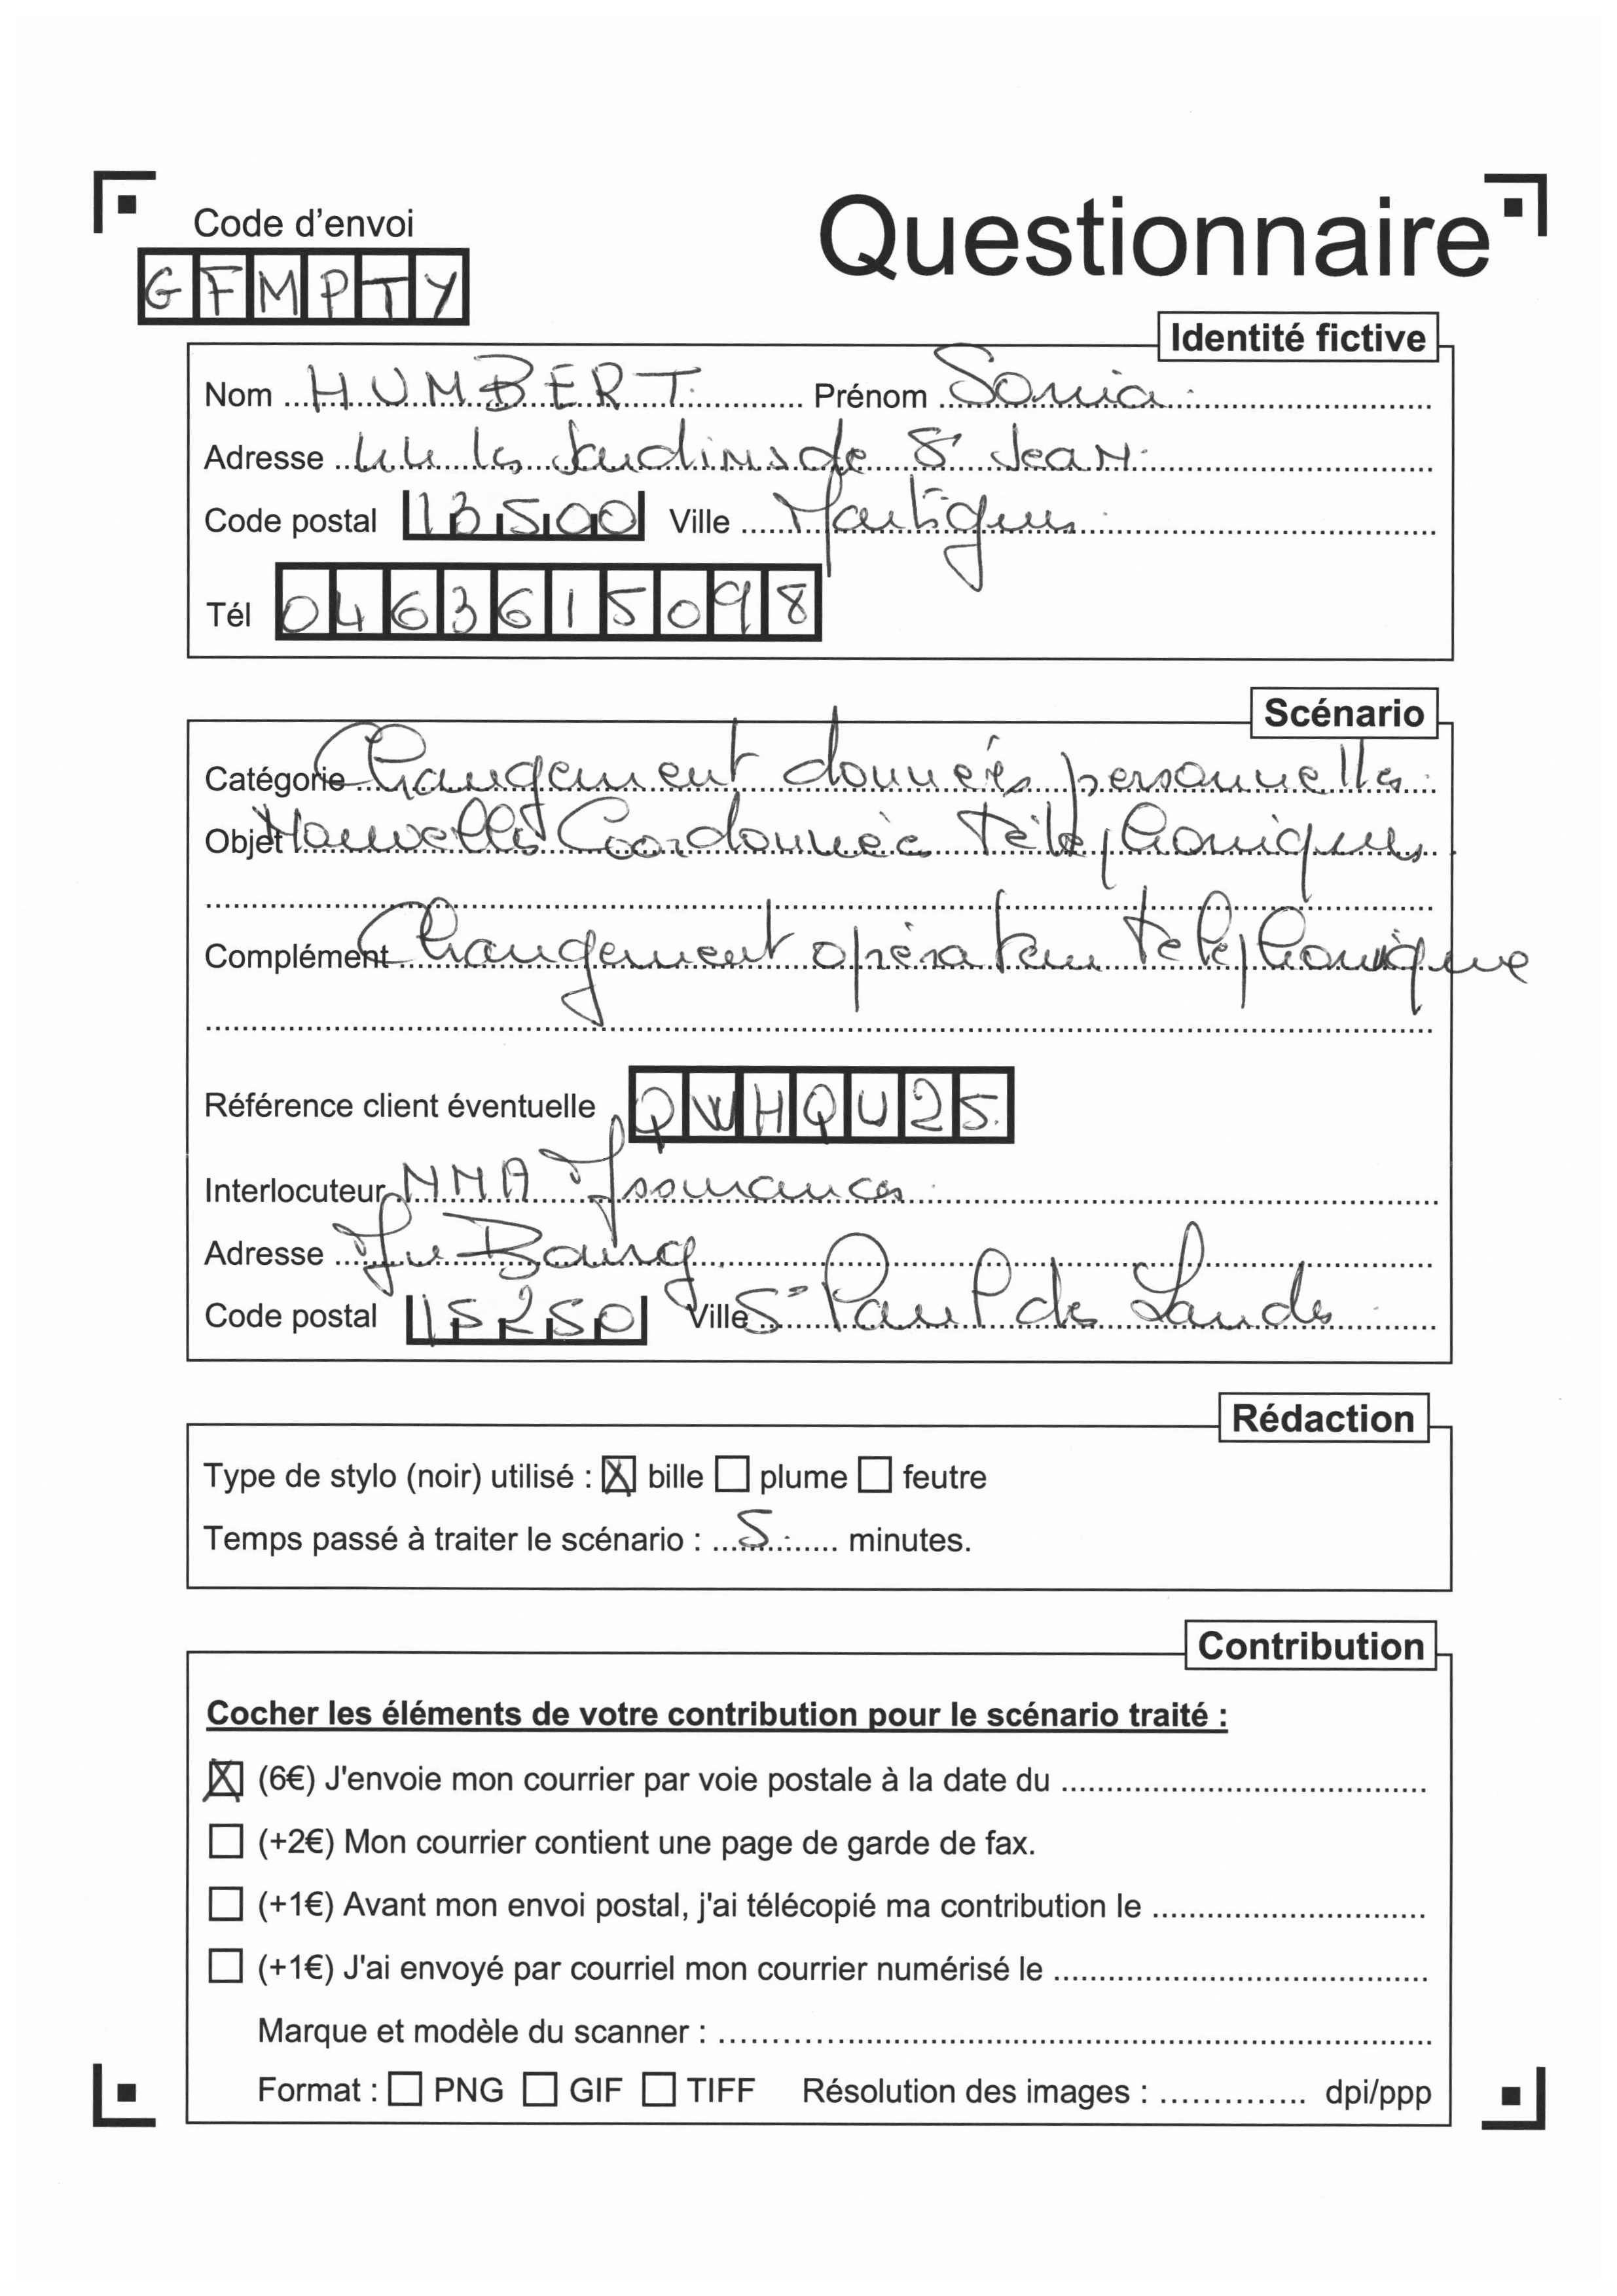 Code d'envoi
Questionnaire
GFMPTY
Identité fictive
Nom HUMBERT Prénom Sonia
Adresse 44 les Jardins de St Jean
Code postal 13500 Ville Martigues
Tél 0463615098
Scénario
Catégorie Changement données personnelles
Objet Nouvelles Coordonnées téléphoniques
Complément Changement opérateur téléphonique
Référence client éventuelle QWHQU25
Interlocuteur MMA Assurances
Adresse Le Bourg
Code postal 15250 Ville St Paul des Landes
Rédaction
Type de stylo (noir) utilisé : ☒ bille ☐ plume ☐ feutre
Temps passé à traiter le scénario : 5 minutes.
Contribution
Cocher les éléments de votre contribution pour le scénario traité :
☒ (6€) J'envoie mon courrier par voie postale à la date du
☐ (+2€) Mon courrier contient une page de garde de fax.
☐ (+1€) Avant mon envoi postal, j'ai télécopié ma contribution le
☐ (+1€) J'ai envoyé par courriel mon courrier numérisé le
Marque et modèle du scanner :
Format : ☐ PNG ☐ GIF ☐ TIFF Résolution des images : dpi/ppp